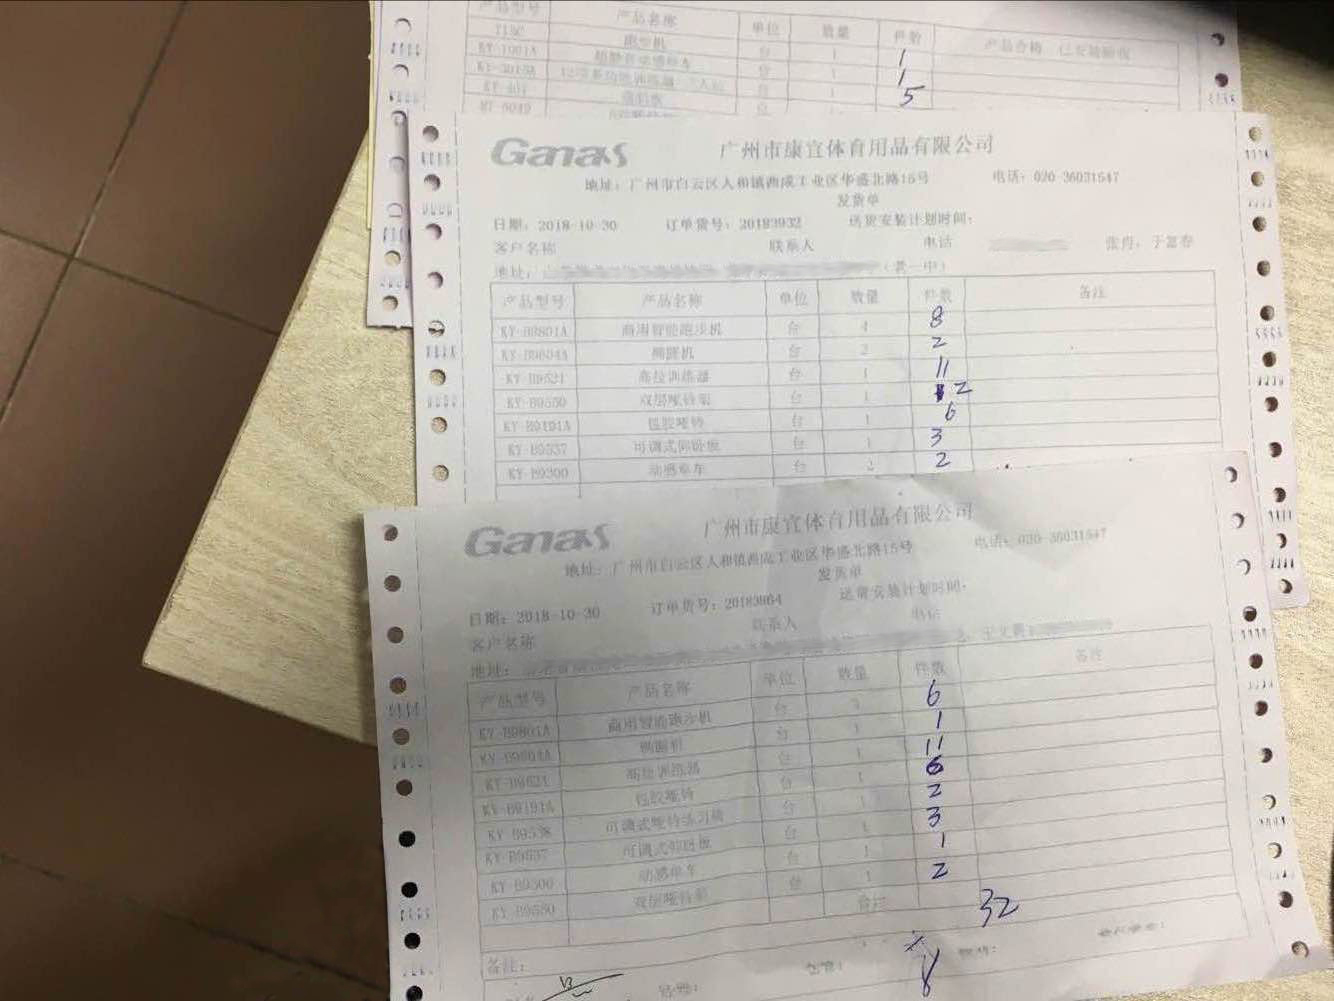 产品型号 产品名称 单位 数量 件数 产品合格 已安装验收
跑步机 台 1
KY-1001A 台 1 1
台 1 1
KY-401 台 1 5
Ganas 广州市康宜体育用品有限公司
地址：广州市白云区人和镇西成工业区华盛北路15号 电话：020-36031547
发货单
日期：2018-10-30 订单货号：20183932 送货安装计划时间：
客户名称 联系人 电话
地址： （老一中）
产品型号 产品名称 单位 数量 件数 备注
KY-B9801A 商用智能跑步机 台 4 8
KY-B9804A 椭圆机 台 2 2
KY-B9521 高拉训练器 台 1 11
KY-B9550 双层哑铃架 台 1 2
KY-B9191A 包胶哑铃 台 1 6
KY-B9537 可调式仰卧板 台 1 3
KY-B9300 动感单车 台 2 2
Ganas 广州市康宜体育用品有限公司
地址：广州市白云区人和镇西成工业区华盛北路15号 电话：020-36031547
发货单
日期：2018-10-30 订单货号：20183864 送货安装计划时间：
客户名称 联系人 电话
地址：
产品型号 产品名称 单位 数量 件数 备注
KY-B9801A 商用智能跑步机 台 3 6
KY-B9804A 椭圆机 台 1 1
KY-B9521 高拉训练器 台 1 11
KY-B9191A 包胶哑铃 台 1 6
KY-B9538 可调式哑铃练习椅 台 1 2
KY-B9537 可调式仰卧板 台 1 3
KY-B9300 动感单车 台 1 1
KY-B9550 双层哑铃架 台 1 2
合计 32
备注：
仓管： 8
经理：